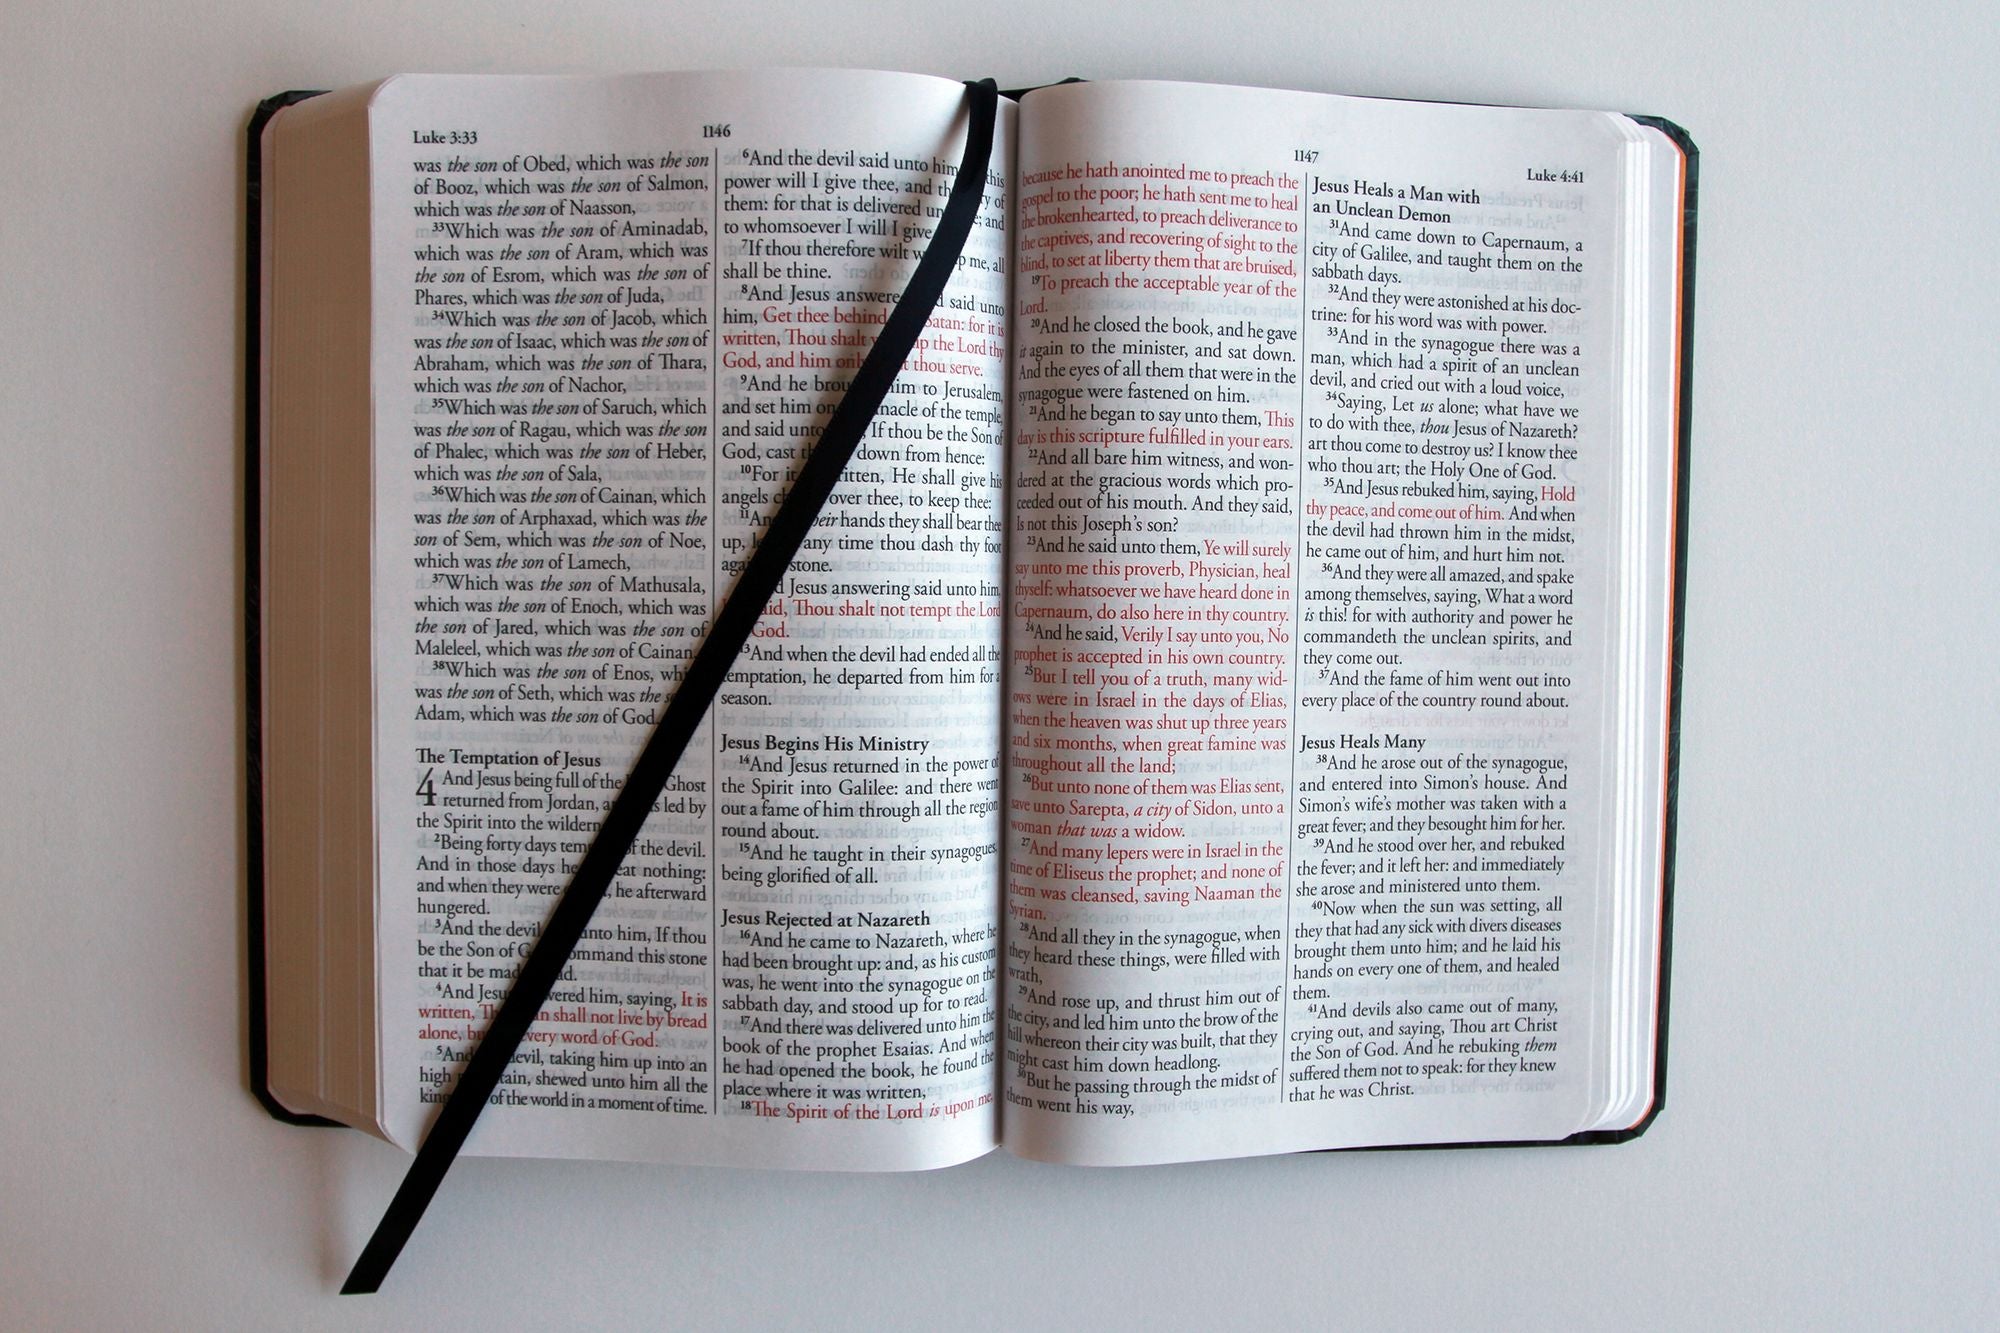 Luke 3:33
1146
was the son of Obed, which was the son
of Booz, which was the son of Salmon,
which was the son of Naasson,
33Which was the son of Aminadab,
which was the son of Aram, which was
the son of Esrom, which was the son of
Phares, which was the son of Juda,
34Which was the son of Jacob, which
was the son of Isaac, which was the son of
Abraham, which was the son of Thara,
which was the son of Nachor,
35Which was the son of Saruch, which
was the son of Ragau, which was the son
of Phalec, which was the son of Heber,
which was the son of Sala,
36Which was the son of Cainan, which
was the son of Arphaxad, which was the
son of Sem, which was the son of Noe,
which was the son of Lamech,
37Which was the son of Mathusala,
which was the son of Enoch, which was
the son of Jared, which was the son of
Maleleel, which was the son of Cainan,
38Which was the son of Enos,
was the son of Seth, which was the
Adam, which was the son of God.
The Temptation of Jesus
4 And Jesus being full of the Ghost
returned from Jordan, led by
the Spirit into the
2Being forty days of the devil.
And in those days eat nothing:
and when they were he afterward
hungered.
3And the devil unto him, If thou
be the Son of command this stone
that it be
4And him, saying, It is
written, shall not live by bread
alone, every word of God.
5And devil, taking him up into an
high shewed unto him all the
of the world in a moment of time.
6And the devil said unto him, this
power will I give thee, and
them: for that is delivered and
to whomsoever I will I give
7If thou therefore wilt me, all
shall be thine.
8And Jesus said unto
him, Get thee behind Satan: for it is
written, Thou shalt the Lord thy
God, and him thou serve.
9And he him to Jerusalem,
and set him on of the temple,
and said If thou be the Son of
God, cast down from hence:
10For it He shall give his
angels over thee, to keep thee:
11 hands they shall bear thee
up, any time thou dash thy foot
stone.
Jesus answering said unto him,
Thou shalt not tempt the Lord
God.
13And when the devil had ended all the
temptation, he departed from him for a
season.
Jesus Begins His Ministry
14And Jesus returned in the power of
the Spirit into Galilee: and there went
out a fame of him through all the region
round about.
15And he taught in their synagogues,
being glorified of all.
Jesus Rejected at Nazareth
16And he came to Nazareth, where he
had been brought up: and, as his custom
was, he went into the synagogue on the
sabbath day, and stood up for to read.
17And there was delivered unto him the
book of the prophet Esaias. And when
he had opened the book, he found the
place where it was written,
18The Spirit of the Lord is upon me,
1147
Luke 4:41
because he hath anointed me to preach the
gospel to the poor; he hath sent me to heal
the brokenhearted, to preach deliverance to
the captives, and recovering of sight to the
blind, to set at liberty them that are bruised,
19To preach the acceptable year of the
Lord.
20And he closed the book, and he gave
it again to the minister, and sat down.
And the eyes of all them that were in the
synagogue were fastened on him.
21And he began to say unto them, This
day is this scripture fulfilled in your ears.
22And all bare him witness, and won-
dered at the gracious words which pro-
ceeded out of his mouth. And they said,
Is not this Joseph's son?
23And he said unto them, Ye will surely
say unto me this proverb, Physician, heal
thyself: whatsoever we have heard done in
Capernaum, do also here in thy country.
24And he said, Verily I say unto you, No
prophet is accepted in his own country.
25But I tell you of a truth, many wid-
ows were in Israel in the days of Elias,
when the heaven was shut up three years
and six months, when great famine was
throughout all the land;
26But unto none of them was Elias sent,
save unto Sarepta, a city of Sidon, unto a
woman that was a widow.
27And many lepers were in Israel in the
time of Eliseus the prophet; and none of
them was cleansed, saving Naaman the
Syrian.
28And all they in the synagogue, when
they heard these things, were filled with
wrath,
29And rose up, and thrust him out of
the city, and led him unto the brow of the
hill whereon their city was built, that they
might cast him down headlong.
30But he passing through the midst of
them went his way,
Jesus Heals a Man with
an Unclean Demon
31And came down to Capernaum, a
city of Galilee, and taught them on the
sabbath days.
32And they were astonished at his doc-
trine: for his word was with power.
33And in the synagogue there was a
man, which had a spirit of an unclean
devil, and cried out with a loud voice,
34Saying, Let us alone; what have we
to do with thee, thou Jesus of Nazareth?
art thou come to destroy us? I know thee
who thou art; the Holy One of God.
35And Jesus rebuked him, saying, Hold
thy peace, and come out of him. And when
the devil had thrown him in the midst,
he came out of him, and hurt him not.
36And they were all amazed, and spake
among themselves, saying, What a word
is this! for with authority and power he
commandeth the unclean spirits, and
they come out.
37And the fame of him went out into
every place of the country round about.
Jesus Heals Many
38And he arose out of the synagogue,
and entered into Simon's house. And
Simon's wife's mother was taken with a
great fever; and they besought him for her.
39And he stood over her, and rebuked
the fever; and it left her: and immediately
she arose and ministered unto them.
40Now when the sun was setting, all
they that had any sick with divers diseases
brought them unto him; and he laid his
hands on every one of them, and healed
them.
41And devils also came out of many,
crying out, and saying, Thou art Christ
the Son of God. And he rebuking them
suffered them not to speak: for they knew
that he was Christ.